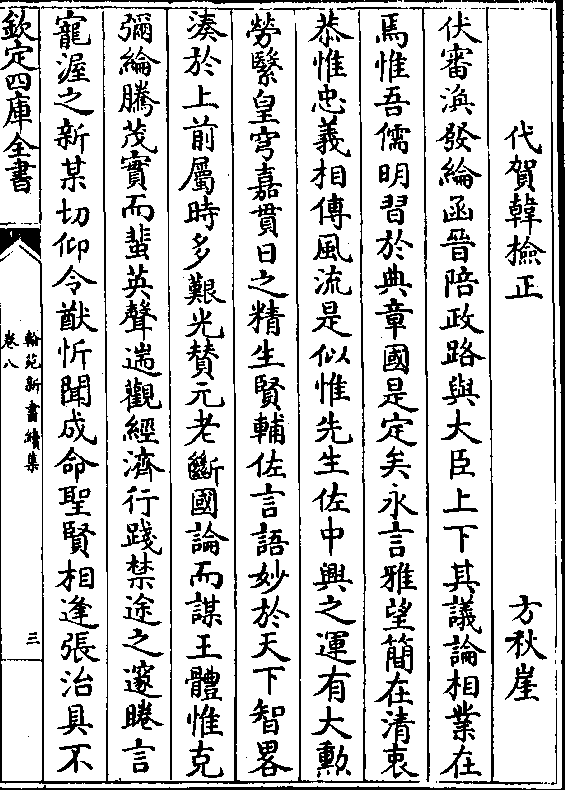 代賀韓檢正 方秋崖
伏審渙發綸函晉陪政路與大臣上下其議論相業在
焉惟吾儒明習於典章國是定矣永言雅望簡在清衷
恭惟忠義相傳風流是似惟先生佐中興之運有大勲
勞繄皇穹嘉貫日之精生賢輔佐言語妙於天下智畧
湊於上前屬時多艱光賛元老斷國論而謀王體惟克
彌綸騰茂實而蜚英聲遄觀經濟行踐禁途之邃睠言
寵渥之新某切仰令猷忻聞成命聖賢相逢張治具不
欽定四庫全書
翰苑新書續集
卷八
三